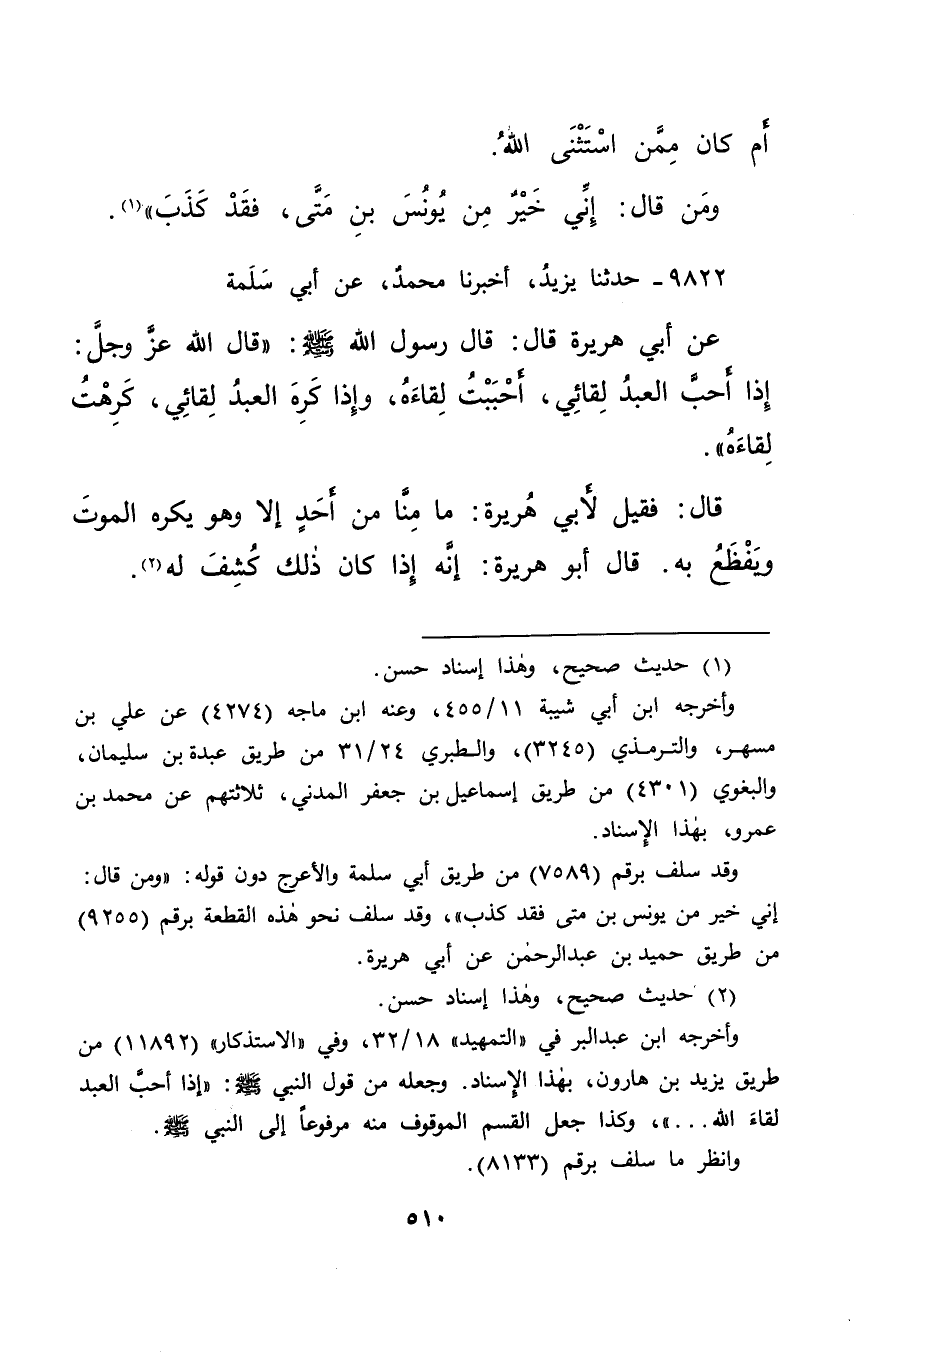 أَم كان مِمَّن اسْتَثْنَى اللهُ.
ومَن قال: إنِّي خَيْرٌ مِن يُونُسَ بنِ مَتَّى، فقَدْ كَذَبَ»(١).
٩٨٢٢ـ حدثنا يزيدُ، أخبرنا محمدٌ، عن أبي سَلَمة
عن أبي هريرة قال: قال رسول الله ﷺ: «قال الله عزَّ وجلَّ:
إذا أَحبَّ العبدُ لِقائِي، أَحْبَبْتُ لِقاءَهُ، وإِذا كَرِهَ العبدُ لِقائِي، كَرِهْتُ
لِقاءَهُ».
قال: فقيل لأَبي هُريرة: ما مِنَّا من أَحَدٍ إلا وهو يكره الموتَ
ويَفْظَعُ به. قال أبو هريرة: إنَّه إِذا كان ذٰلك كُشِفَ له(٢).
(١) حديث صحيح، وهٰذا إسناد حسن.
وأخرجه ابن أبي شيبة ٤٥٥/١١، وعنه ابن ماجه (٤٢٧٤) عن علي بن
مسهر، والترمذي (٣٢٤٥)، والطبري ٣١/٢٤ من طريق عبدة بن سليمان،
والبغوي (٤٣٠١) من طريق إسماعيل بن جعفر المدني، ثلاثتهم عن محمد بن
عمرو، بهٰذا الإِسناد.
وقد سلف برقم (٧٥٨٩) من طريق أبي سلمة والأعرج دون قوله: «ومن قال:
إني خير من يونس بن متى فقد كذب»، وقد سلف نحو هٰذه القطعة برقم (٩٢٥٥)
من طريق حميد بن عبدالرحمٰن عن أبي هريرة.
(٢) حديث صحيح، وهٰذا إسناد حسن.
وأخرجه ابن عبدالبر في «التمهيد» ٣٢/١٨، وفي «الاستذكار» (١١٨٩٢) من
طريق يزيد بن هارون، بهٰذا الإِسناد. وجعله من قول النبي ﷺ: «إذا أحبَّ العبد
لقاءَ الله...»، وكذا جعل القسم الموقوف منه مرفوعاً إلى النبي ﷺ.
وانظر ما سلف برقم (٨١٣٣).
٥١٠